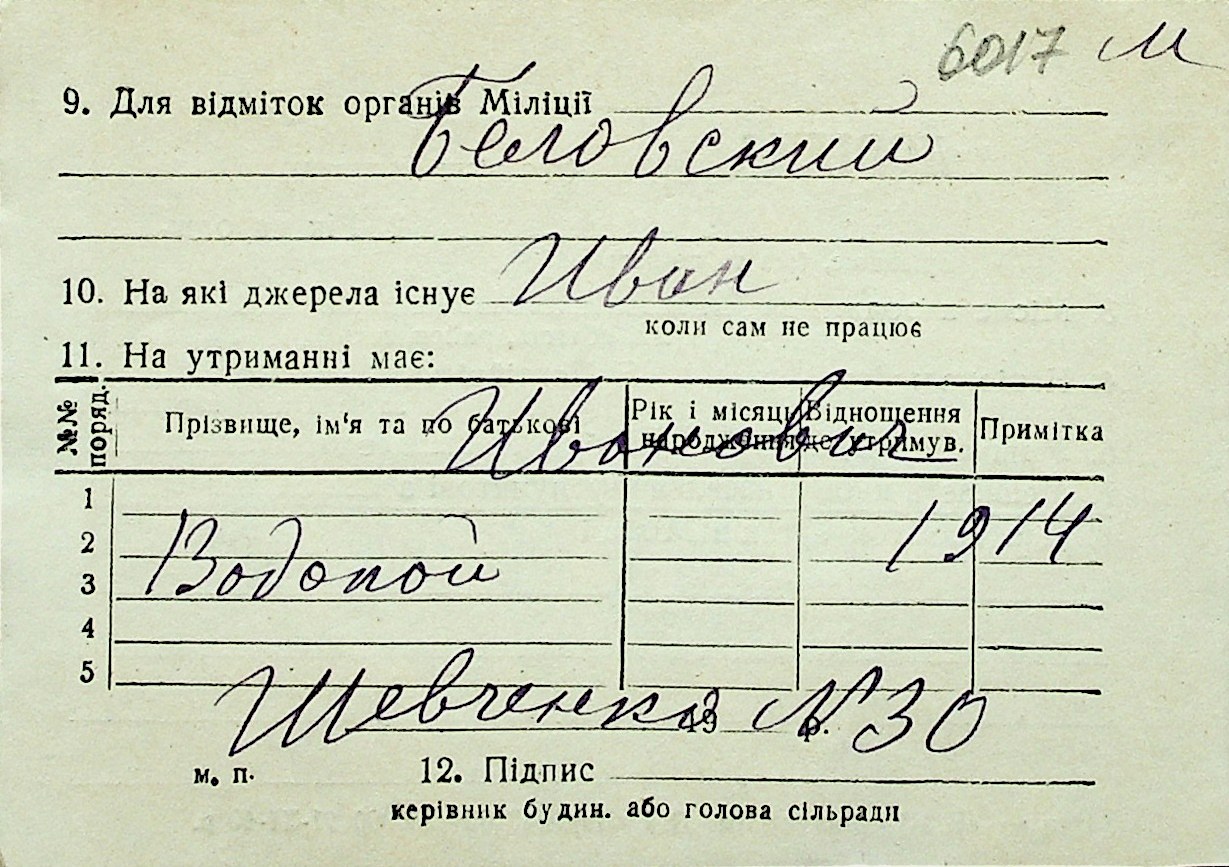 6017 м
9. Для відміток органів Міліції
Беловский
10. На які джерела існує Иван
коли сам не працює
11. На утриманні має:
№№ поряд. Прізвище, ім'я та по батькові Рік і місяць народження Відношення до утримув. Примітка
Иванович
1
1914
2
Водопой
3
4
5
Шевченко N 30
19 р.
м. п. 12. Підпис
керівник будин. або голова сільради